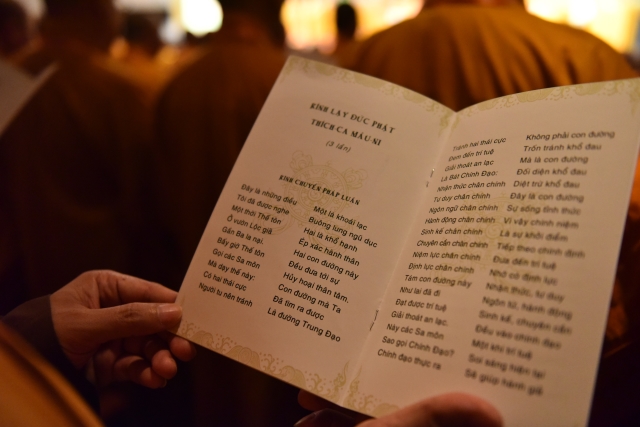 KÍNH LẠY ĐỨC PHẬT
THÍCH CA MÂU-NI
(3 lần)
KINH CHUYỂN PHÁP LUÂN
Đây là những điều
Tôi đã được nghe
Một thời Thế tôn
Ở vườn Lộc giả
Gần Ba la nại.
Bấy giờ Thế tôn
Gọi các Sa môn
Mà dạy thế này:
Có hai thái cực
Người tu nên tránh
Một là khoái lạc
Buông lung ngũ dục
Hai là khổ hạnh
Ép xác hành thân
Hai con đường này
Đều đưa tới sự
Hủy hoại thân tâm.
Con đường mà Ta
Đã tìm ra được
Là đường Trung Đạo
Tránh hai thái cực
Đem đến trí tuệ
Giải thoát an lạc
Là Bát Chính Đạo:
Nhận thức chân chính
Tư duy chân chính
Ngôn ngữ chân chính
Hành động chân chính
Sinh kế chân chính
Chuyên cần chân chính
Niệm lực chân chính
Định lực chân chính
Tám con đường này
Như lai đã đi
Đạt được trí tuệ
Giải thoát an lạc.
Này các Sa môn
Sao gọi Chính Đạo?
Chính đạo thực ra
Không phải con đường
Trốn tránh khổ đau
Mà là con đường
Đối diện khổ đau
Diệt trừ khổ đau
Đây là con đường
Sự sống tỉnh thức
Vì vậy chính niệm
Là sự khởi điểm
Tiếp theo chính định
Đưa đến trí tuệ
Nhờ có định lực
Nhận thức, tư duy
Ngôn từ, hành động
Sinh kế, chuyên cần
Đều vào chính đạo
Một khi trí tuệ
Soi sáng hiện tại
Sẽ giúp hành giả